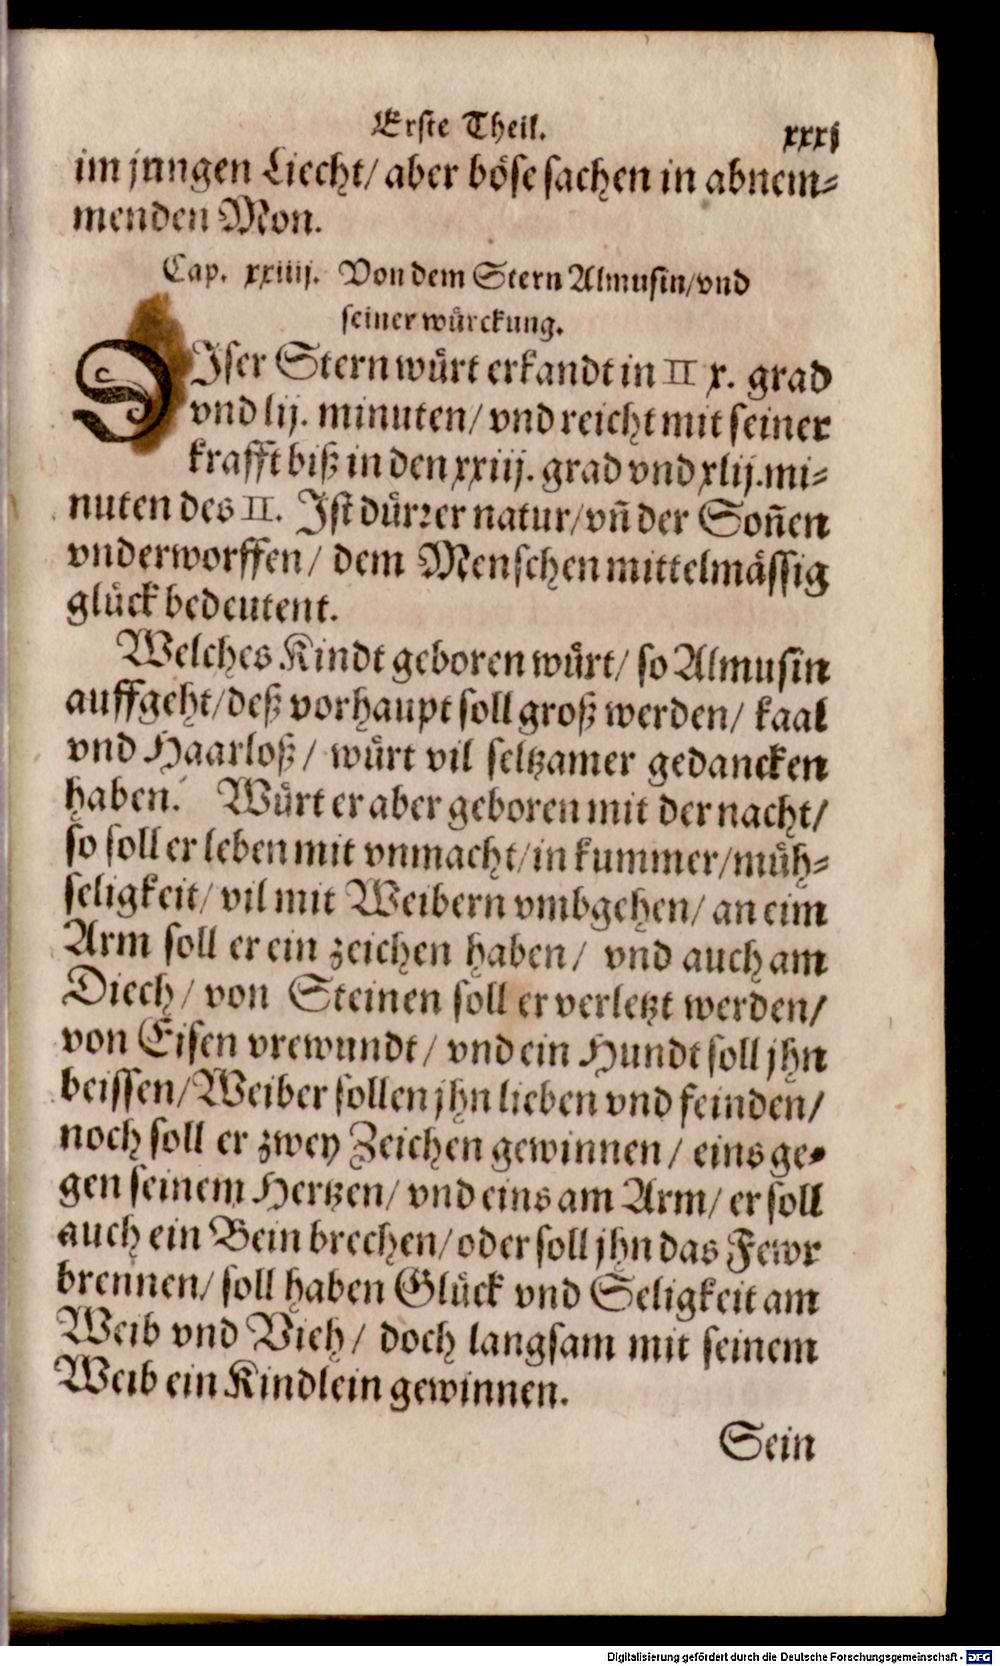 Erste Theil. xxxj
im jungen Liecht/ aber böse sachen in abnem⸗
menden Mon.
Cap. xxiiij. Von dem Stern Almusin/ vnd
seiner würckung.
DIser Stern würt erkandt in II x. grad
vnd lij. minuten/ vnd reicht mit seiner
krafft biß in den xxiij. grad vnd xlij. mi⸗
nuten des II. Ist dürrer natur/ vñ der Soñen
vnderworffen/ dem Menschen mittelmässig
glück bedeutent.
Welches Kindt geboren würt/ so Almusin
auffgeht/ deß vorhaupt soll groß werden/ kaal
vnd Haarloß/ würt vil seltzamer gedancken
haben. Würt er aber geboren mit der nacht/
so soll er leben mit vnmacht/ in kummer/ müh⸗
seligkeit/ vil mit Weibern vmbgehen/ an eim
Arm soll er ein zeichen haben/ vnd auch am
Diech/ von Steinen soll er verletzt werden/
von Eisen vrewundt/ vnd ein Hundt soll jhn
beissen/ Weiber sollen jhn lieben vnd feinden/
noch soll er zwey Zeichen gewinnen/ eins ge⸗
gen seinem Hertzen/ vnd eins am Arm/ er soll
auch ein Bein brechen/ oder soll jhn das Fewr
brennen/ soll haben Glück vnd Seligkeit am
Weib vnd Vieh/ doch langsam mit seinem
Weib ein Kindlein gewinnen.
Sein
Digitalisierung gefördert durch die Deutsche Forschungsgemeinschaft - DFG